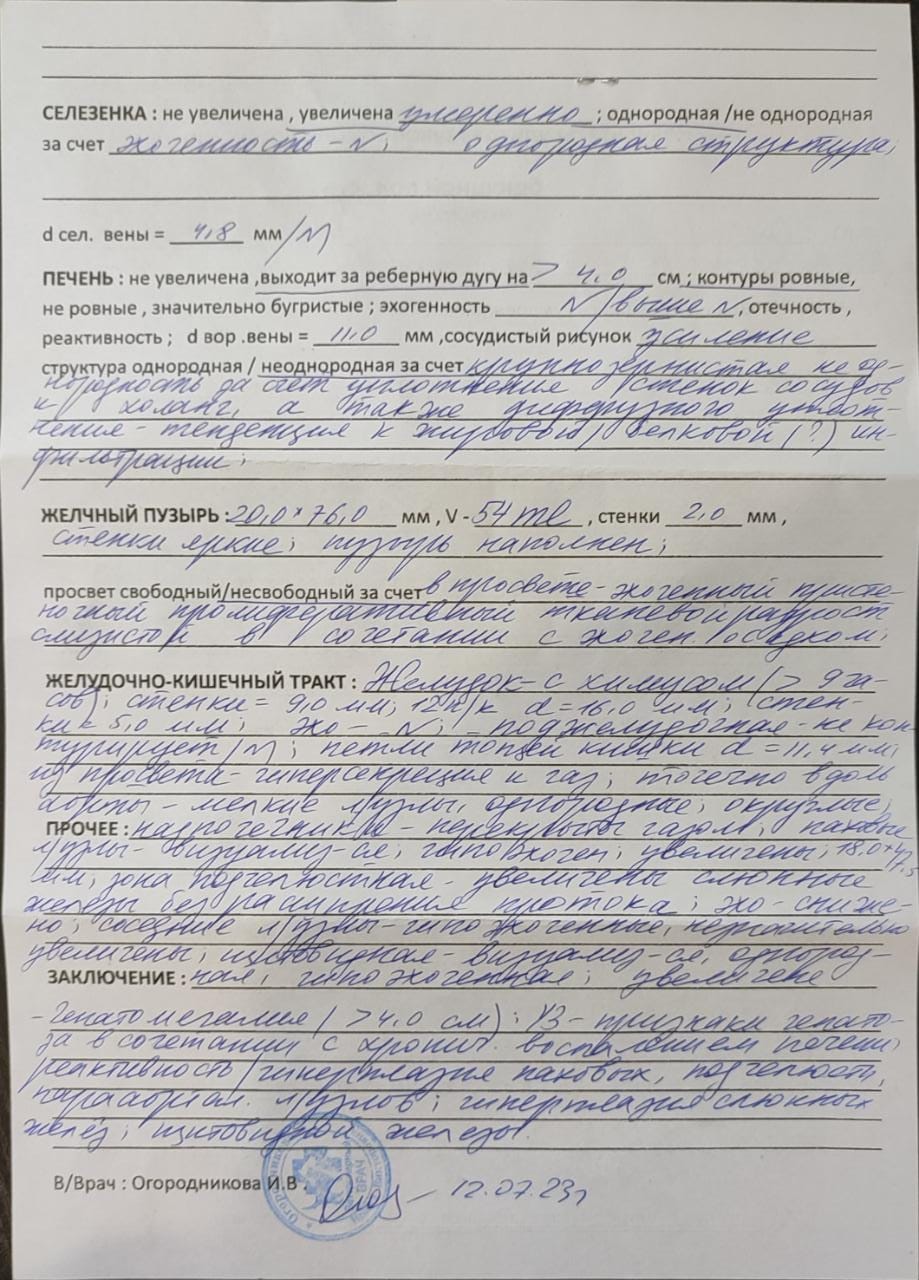 СЕЛЕЗЕНКА : не увеличена , увеличена умеренно ; однородная /не однородная
за счет эхогенность - N; однородная структура;
d сел. вены = 4,8 мм /N
ПЕЧЕНЬ : не увеличена ,выходит за реберную дугу на > 4,0 см ; контуры ровные,
не ровные , значительно бугристые ; эхогенность N/выше N, отечность ,
реактивность ; d вор .вены = 11,0 мм ,сосудистый рисунок усиление
структура однородная / неоднородная за счет крупнозернистая неод-
нородность за счет уплотнения стенок сосудов
и холанг, а также диффузного уплот-
нения - тенденция к жировой/белковой (?) ин-
фильтрации;
ЖЕЛЧНЫЙ ПУЗЫРЬ : 20,0 × 76,0 мм , V - 54 ml , стенки 2,0 мм ,
стенки яркие; пузырь наполнен;
просвет свободный/несвободный за счет в просвете - эхогенный присте-
ночный пролиферативный тканевой разрост
слизистой в сочетании с эхоген. осадком;
ЖЕЛУДОЧНО-КИШЕЧНЫЙ ТРАКТ : Желудок - с химусом (> 9 ча-
сов); стенки = 9,0 мм; 12 п/к d = 16,0 мм; стен-
ки = 5,0 мм; эхо - N; поджелудочная - не кон-
турирует/N; петли тощей кишки d = 11,4 мм;
из просвета - гиперсекреция и газ; точечно вдоль
аорты - мелкие л/узлы, однородные; округлые;
ПРОЧЕЕ : надпочечники - перекрыты газом; паховые
л/узлы - визуализ-ся; гипоэхоген; увеличены; 18,0 × 47,5
мм; зона подчелюстная - увеличены слюнные
железы без расширения протока; эхо - сниже-
но; соседние л/узлы - гипоэхогенные, незначительно
увеличены; щитовидная - визуализ-ся, однород-
ЗАКЛЮЧЕНИЕ : ная, гипоэхогенная; увеличена
- Гепатомегалия (> 4,0 см); УЗ - признаки гепато-
за в сочетании с хронич. воспалением печени;
реактивность/гиперплазия паховых, подчелюст,
парааорт. л/узлов; гиперплазия слюнных
желез; щитовидной железы.
В/Врач : Огородникова И.В .
12.07.23г